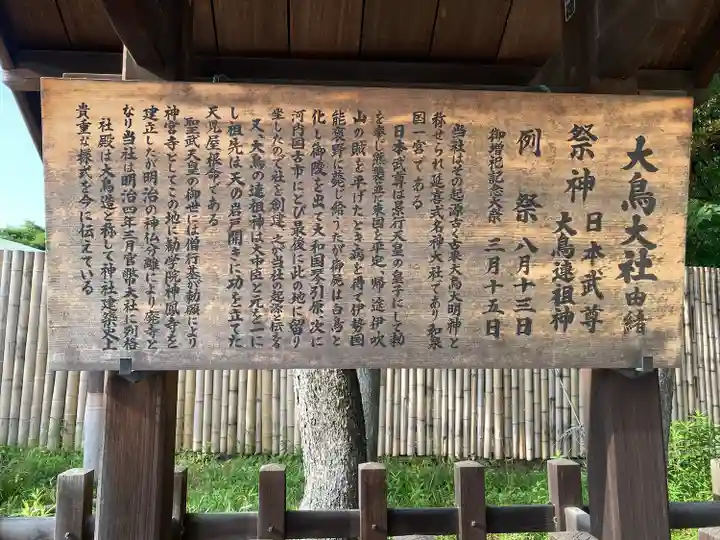 大鳥大社由緒
祭神 日本武尊
大鳥連祖神
例祭 八月十三日
御増祀記念大祭 三月十五日
当社はその起源古く古来大鳥大明神と
称せられ延喜式名神大社であり和泉
国一宮である
日本武尊は景行天皇の皇子にして勅
を奉じ熊襲並に東国を平定、帰途伊吹
山の賊を平げたとき病を得て伊勢国
能褒野に薨じ給うたが御屍は白鳥と
化し御陵を出て大和国琴引原、次に
河内国古市にとび最後に此の地に留り
坐したので社を創建、之を当社の起源と伝うる
又、大鳥の連祖神は大中臣と元を一に
し祖先は天の岩戸開きに功を立てた
天児屋根命である
聖武天皇の御世には僧行基が勅願により
神宮寺としてこの地に勧学院神鳳寺を
建立したが明治の神仏分離により廃寺と
なり当社は明治四年三月官幣大社に列格
社殿は大鳥造と称して神社建築史上
貴重な様式を今に伝えている